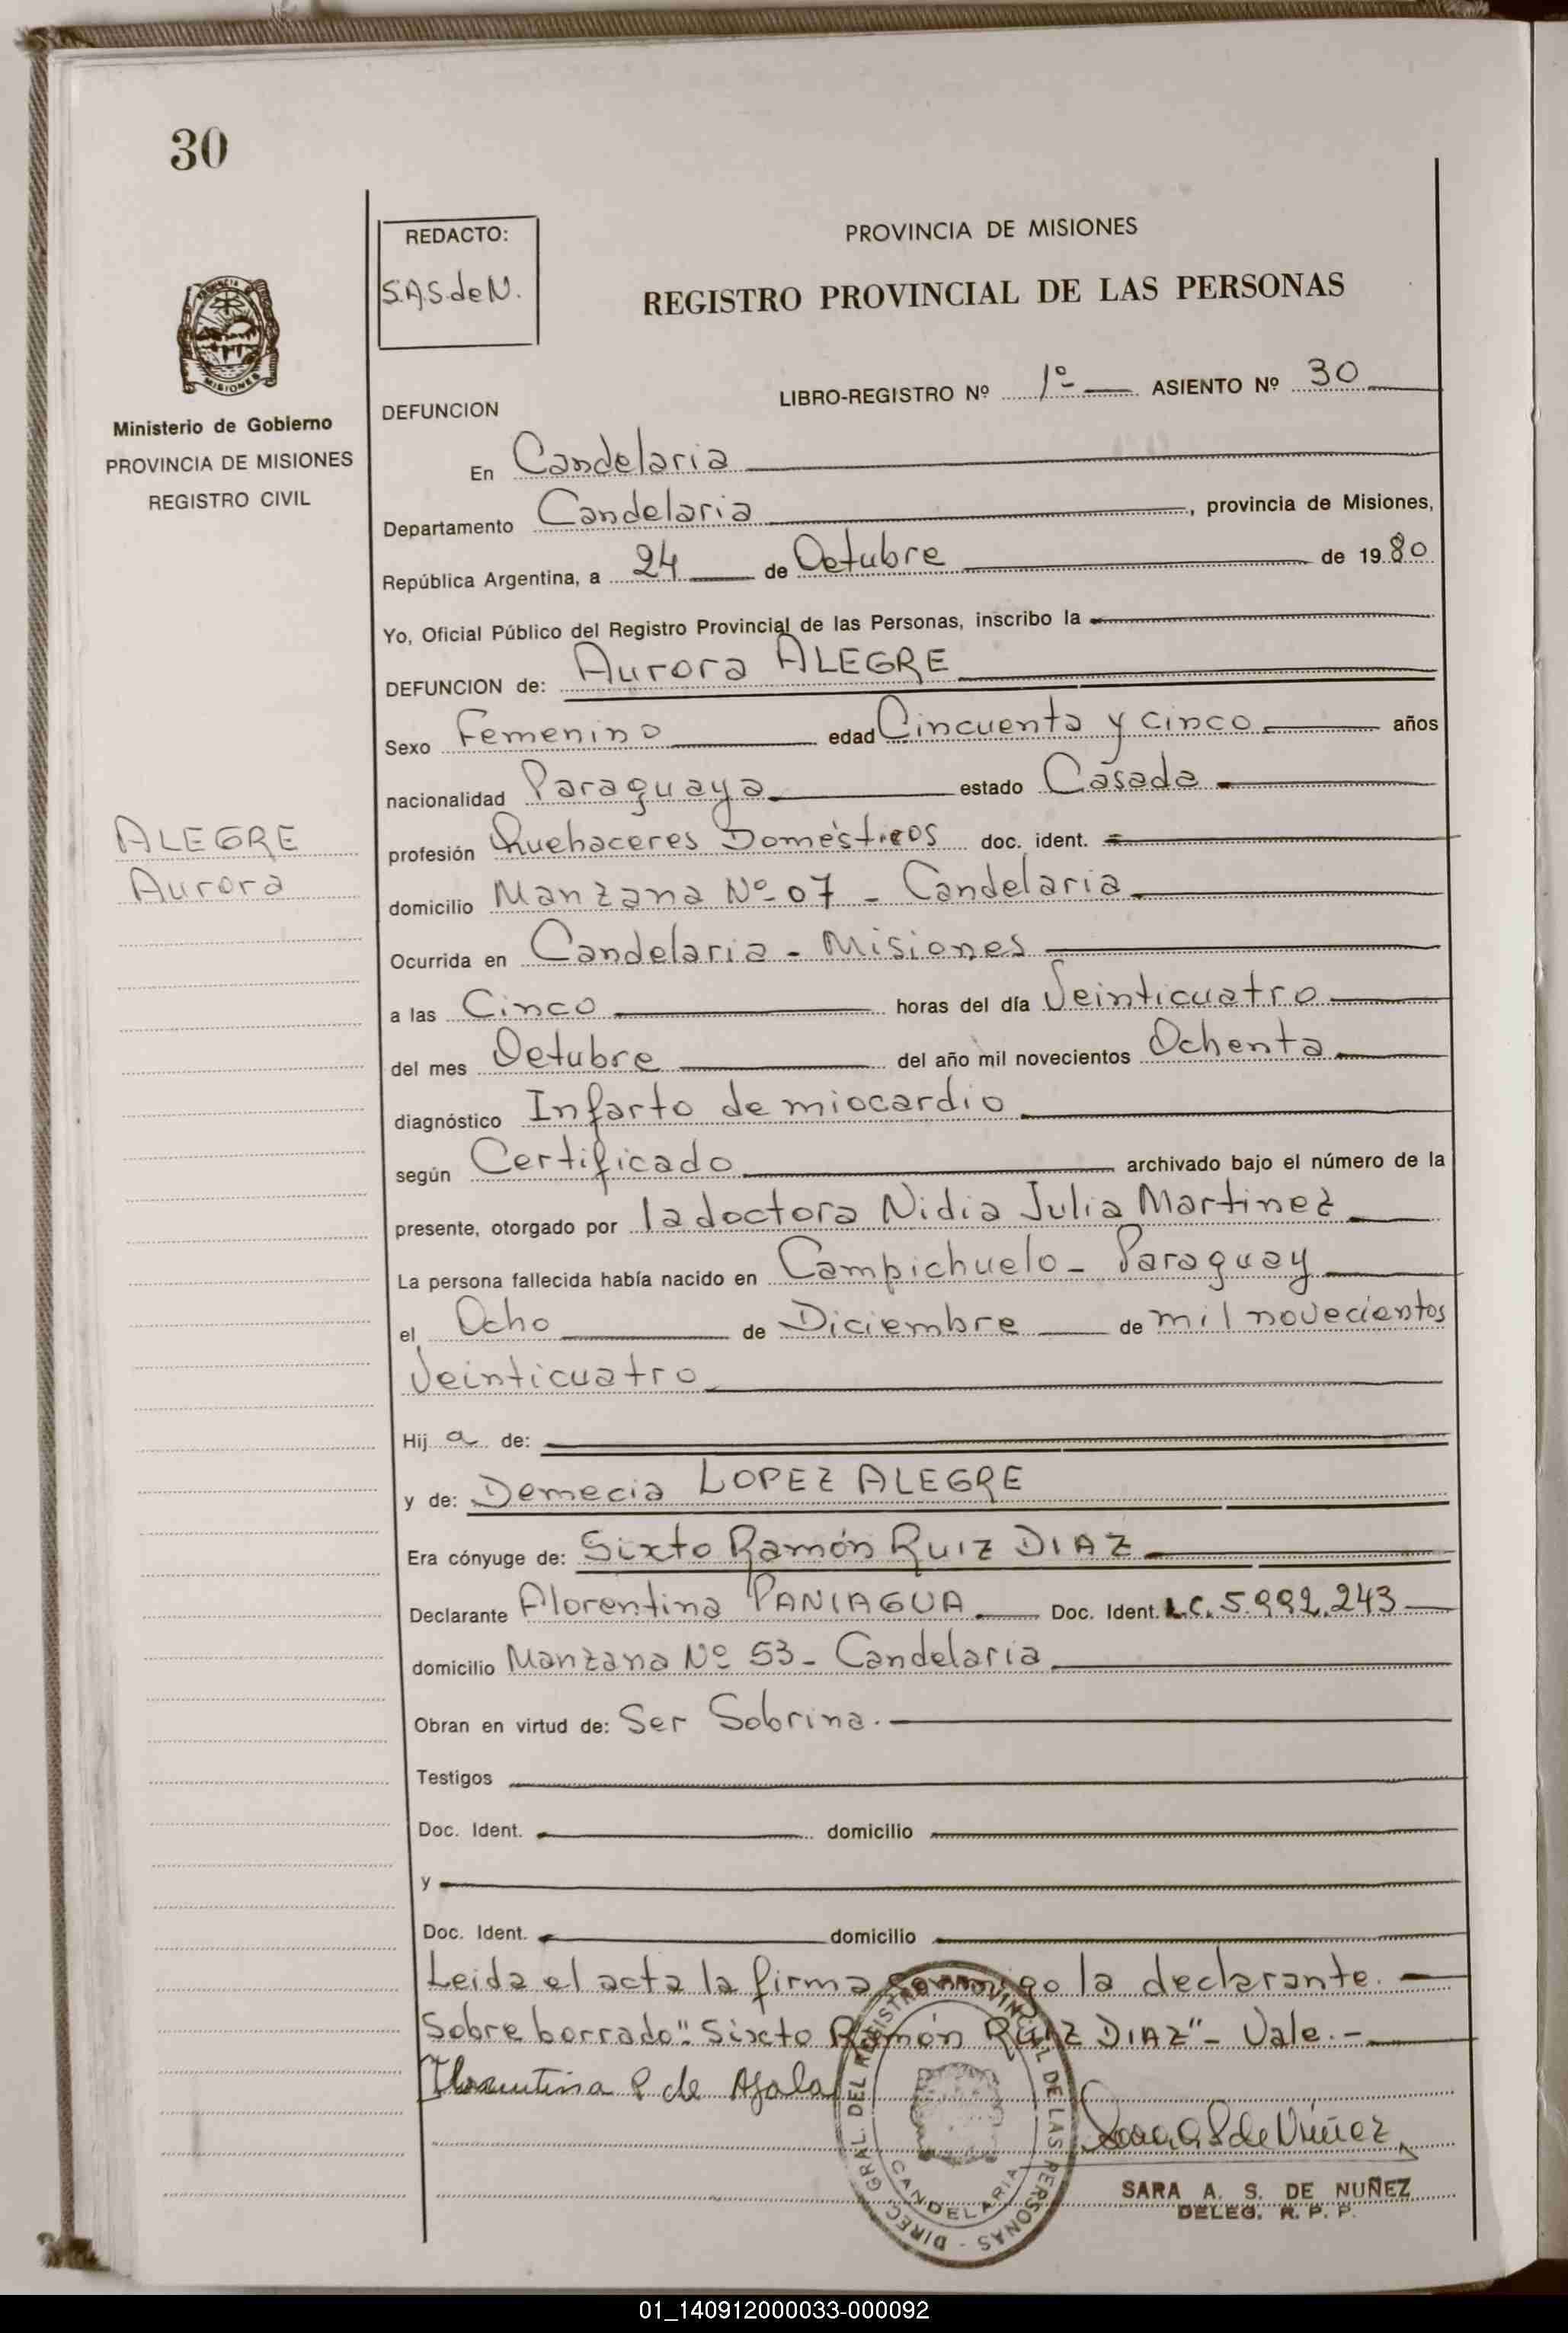 30
REDACTO:
S.A.S. de N.
PROVINCIA DE MISIONES
REGISTRO PROVINCIAL DE LAS PERSONAS
MISIONES
Ministerio de Gobierno
PROVINCIA DE MISIONES
REGISTRO CIVIL
LIBRO-REGISTRO Nº 1º ASIENTO Nº 30
DEFUNCION
En Candelaria
Departamento Candelaria, provincia de Misiones,
República Argentina, a 24 de Octubre de 1980
Yo, Oficial Público del Registro Provincial de las Personas, inscribo la
DEFUNCION de: Aurora ALEGRE
Sexo Femenino edad Cincuenta y cinco años
nacionalidad Paraguaya estado Casada
ALEGRE
Aurora
profesión Quehaceres Domésticos doc. ident.
domicilio Manzana Nº 07 - Candelaria
Ocurrida en Candelaria - Misiones
a las Cinco horas del día Veinticuatro
del mes Octubre del año mil novecientos Ochenta
diagnóstico Infarto de miocardio
según Certificado archivado bajo el número de la
presente, otorgado por la doctora Nidia Julia Martinez
La persona fallecida había nacido en Campichuelo - Paraguay
el Ocho de Diciembre de mil novecientos
Veinticuatro
Hij a de:
y de: Demecia LOPEZ ALEGRE
Era cónyuge de: Sixto Ramón RUIZ DIAZ
Declarante Florentina PANIAGUA Doc. Ident. L.C. 5.992.243
domicilio Manzana Nº 53 - Candelaria
Obran en virtud de: Ser Sobrina.
Testigos
Doc. Ident. domicilio
y
Doc. Ident. domicilio
Leida el acta la firma conmigo la declarante.
Sobre borrado "Sixto Ramón RUIZ DIAZ" - Vale. -
Florentina P de Ayala
Sara A S de Núñez
DIREC. GRAL DEL REGISTRO PROVINCIAL DE LAS PERSONAS - CANDELARIA
SARA A. S. DE NUÑEZ
DELEG. R. P. P.
01_140912000033-000092